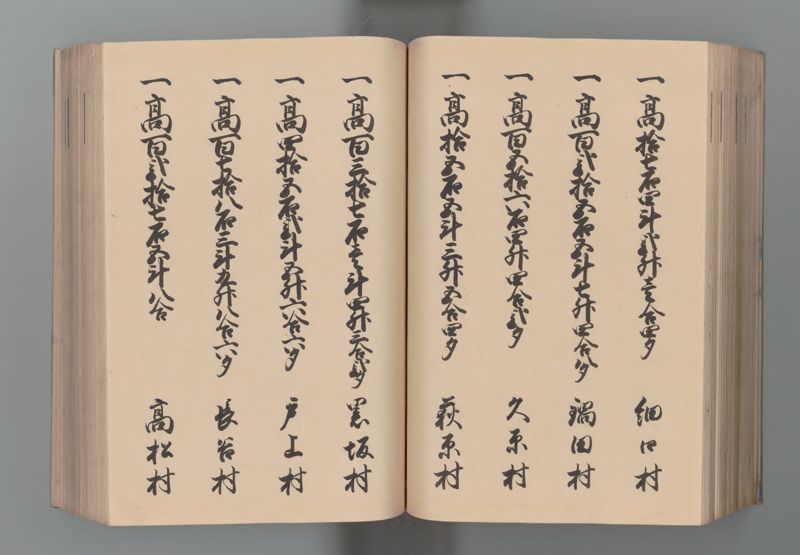 一高拾七石四斗弐升壱合四夕 細口村
一高百弐拾五石五斗七升四合八夕 鍋田村
一高百五拾六石四升四合弐夕 久原村
一高拾五石五斗三升五合四夕 萩原村
一高百三拾七石壱斗四升三合弐夕 黒坂村
一高四拾五石弐斗五升六合六夕 戸上村
一高百七拾八石三斗五升八合六夕 長谷村
一高百弐拾七石五斗八合 高松村